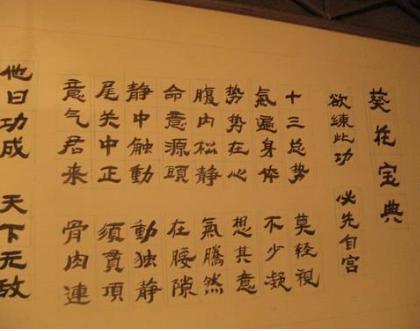 葵花宝典
欲練此功 必先自宫
十三总势 莫轻视
氣遍身体 不少凝
势势在心 想其意
腹内松静 氣騰然
命意源頭 在腰隙
静中触動 動独静
尾关中正 須貫頂
意气君来 骨肉連
他日功成 天下无敌